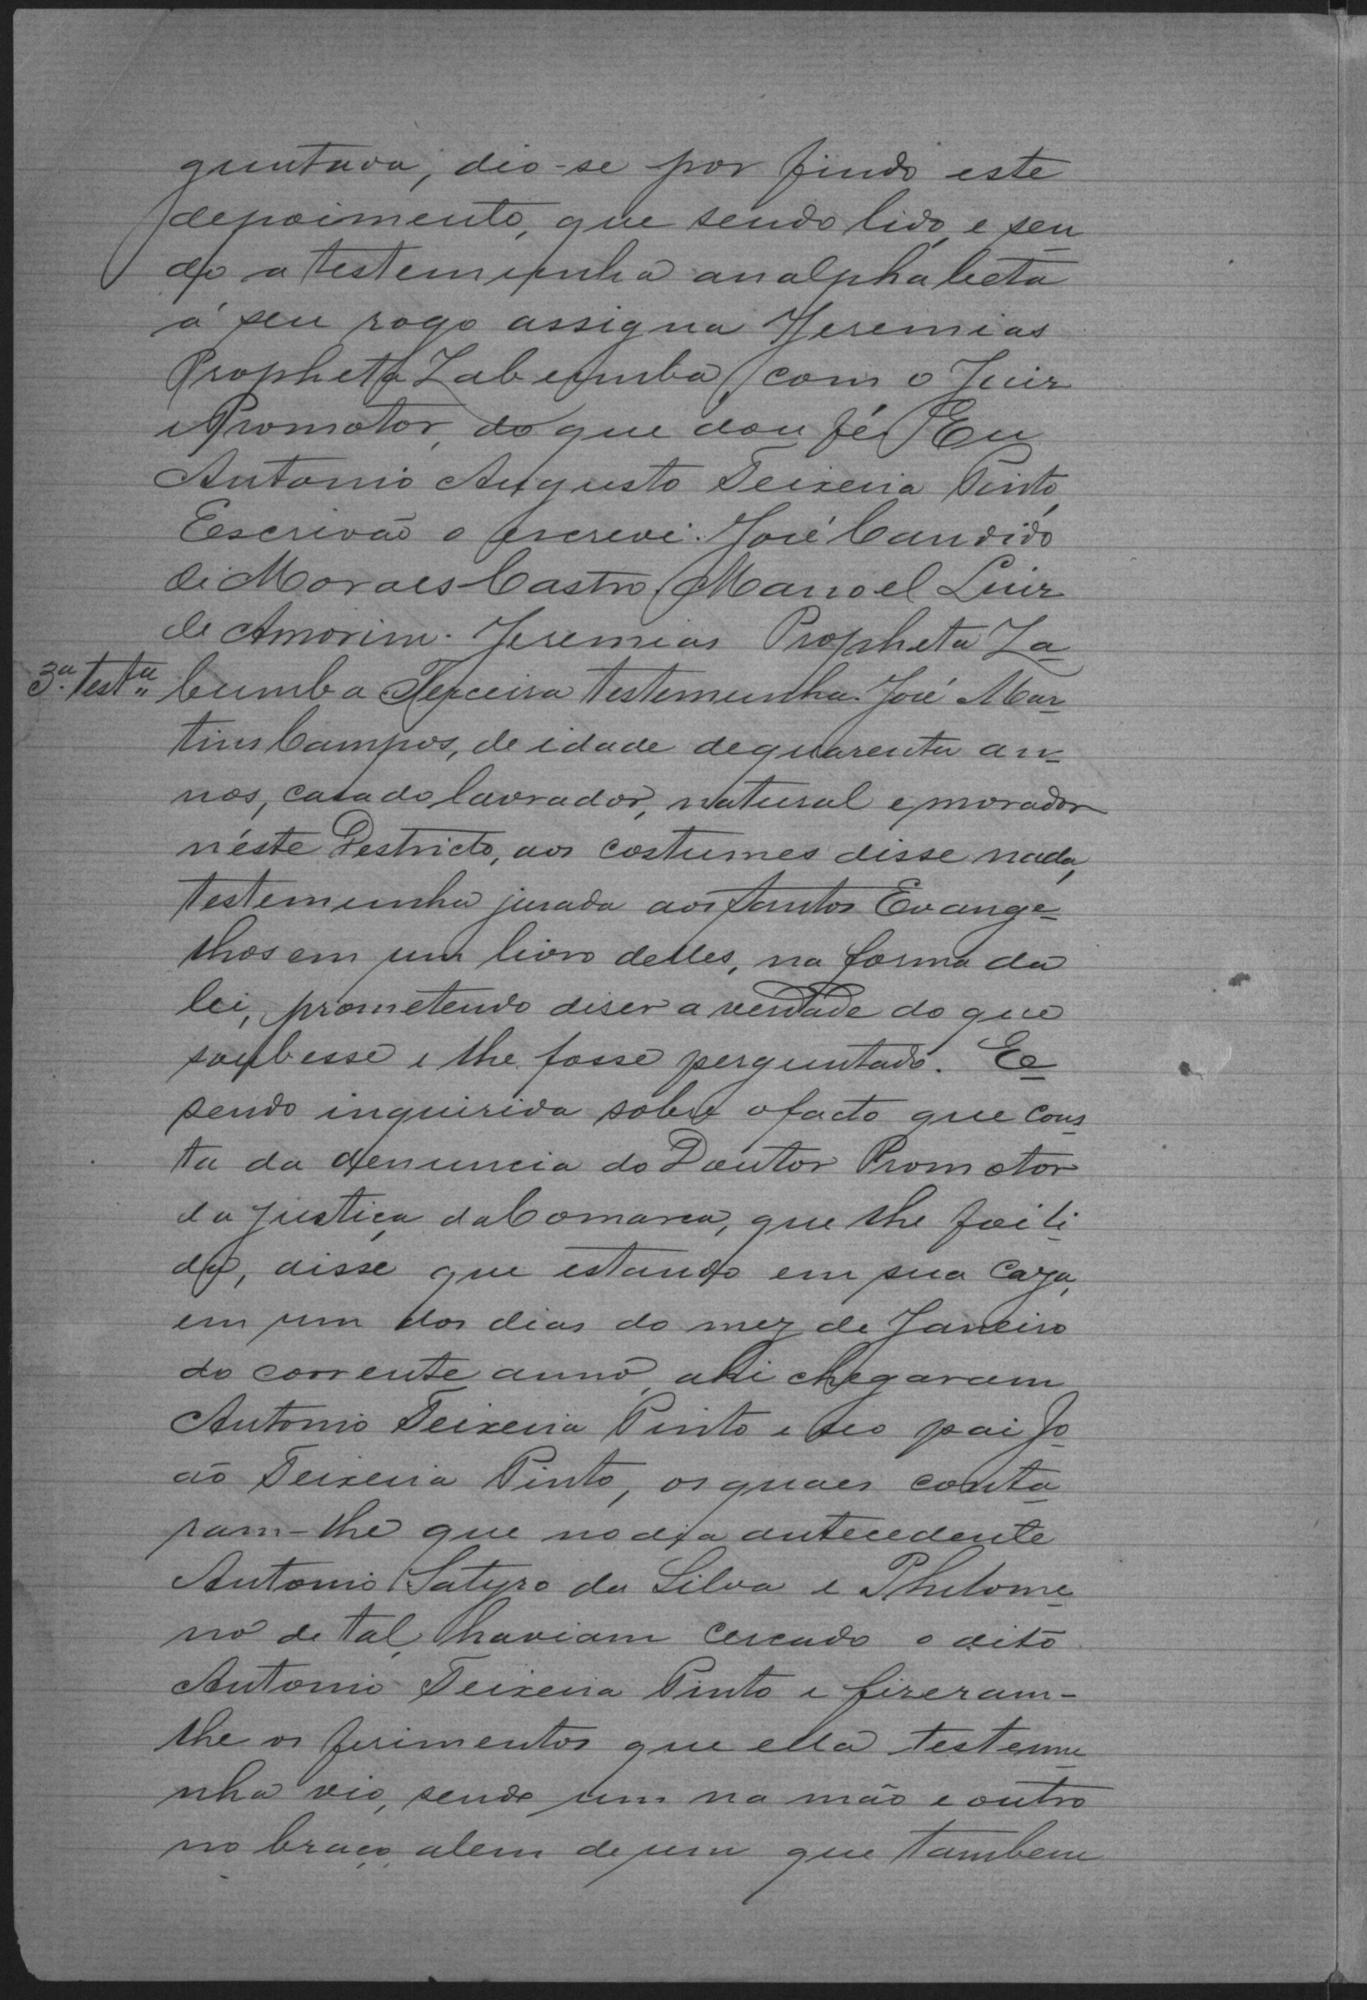 guntava, dio-se por findo este
depoimento, que sendo lido, e sen
do a testemunha analphabeta
á seu rogo assigna Jeremias
Propheta Zabumba com o Juiz
e Promotor, do que dou fé. Eu
Antonio Augusto Teixeira Pinto,
Escrivão o escrevi. José Candido
de Moraes Castro, Manoel Luiz
de Amorim. Jeremias Propheta Za-
3.ª test.ª bumba Terceira testemunha. José Mar-
tins Campos, de idade de quarenta an-
nos, casado lavrador, natural e morador
n'éste Destricto, aos costumes disse nada,
testemunha jurada aos Santos Evange-
lhos em um livro delles, na forma da
lei, prometendo diser a verdade do que
soubesse e lhe fosse perguntado. E
sendo inquirida sobre o facto que cons-
ta da denuncia do Doutor Promotor
da Justiça da Comarca, que lhe foi li-
da, disse que estando em sua caza,
em um dos dias do mez de Janeiro
do corrente anno, ahi chegaram
Antonio Teixeira Pinto e seo pai Jo-
ão Teixeira Pinto, os quaes conta-
ram-lhe que no dia antecedente
Antonio Satyro da Silva e Philome-
no de tal, haviam cercado o dito
Antonio Teixeira Pinto e fizeram-
lhe os ferimentos que ella testemu-
nha vio, sendo um na mão e outro
no braço, alem de um que tambem